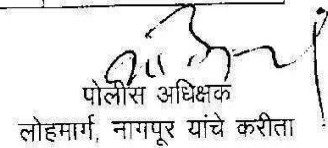 पोलीस अधिक्षक
लोहमार्ग, नागपूर यांचे करीता